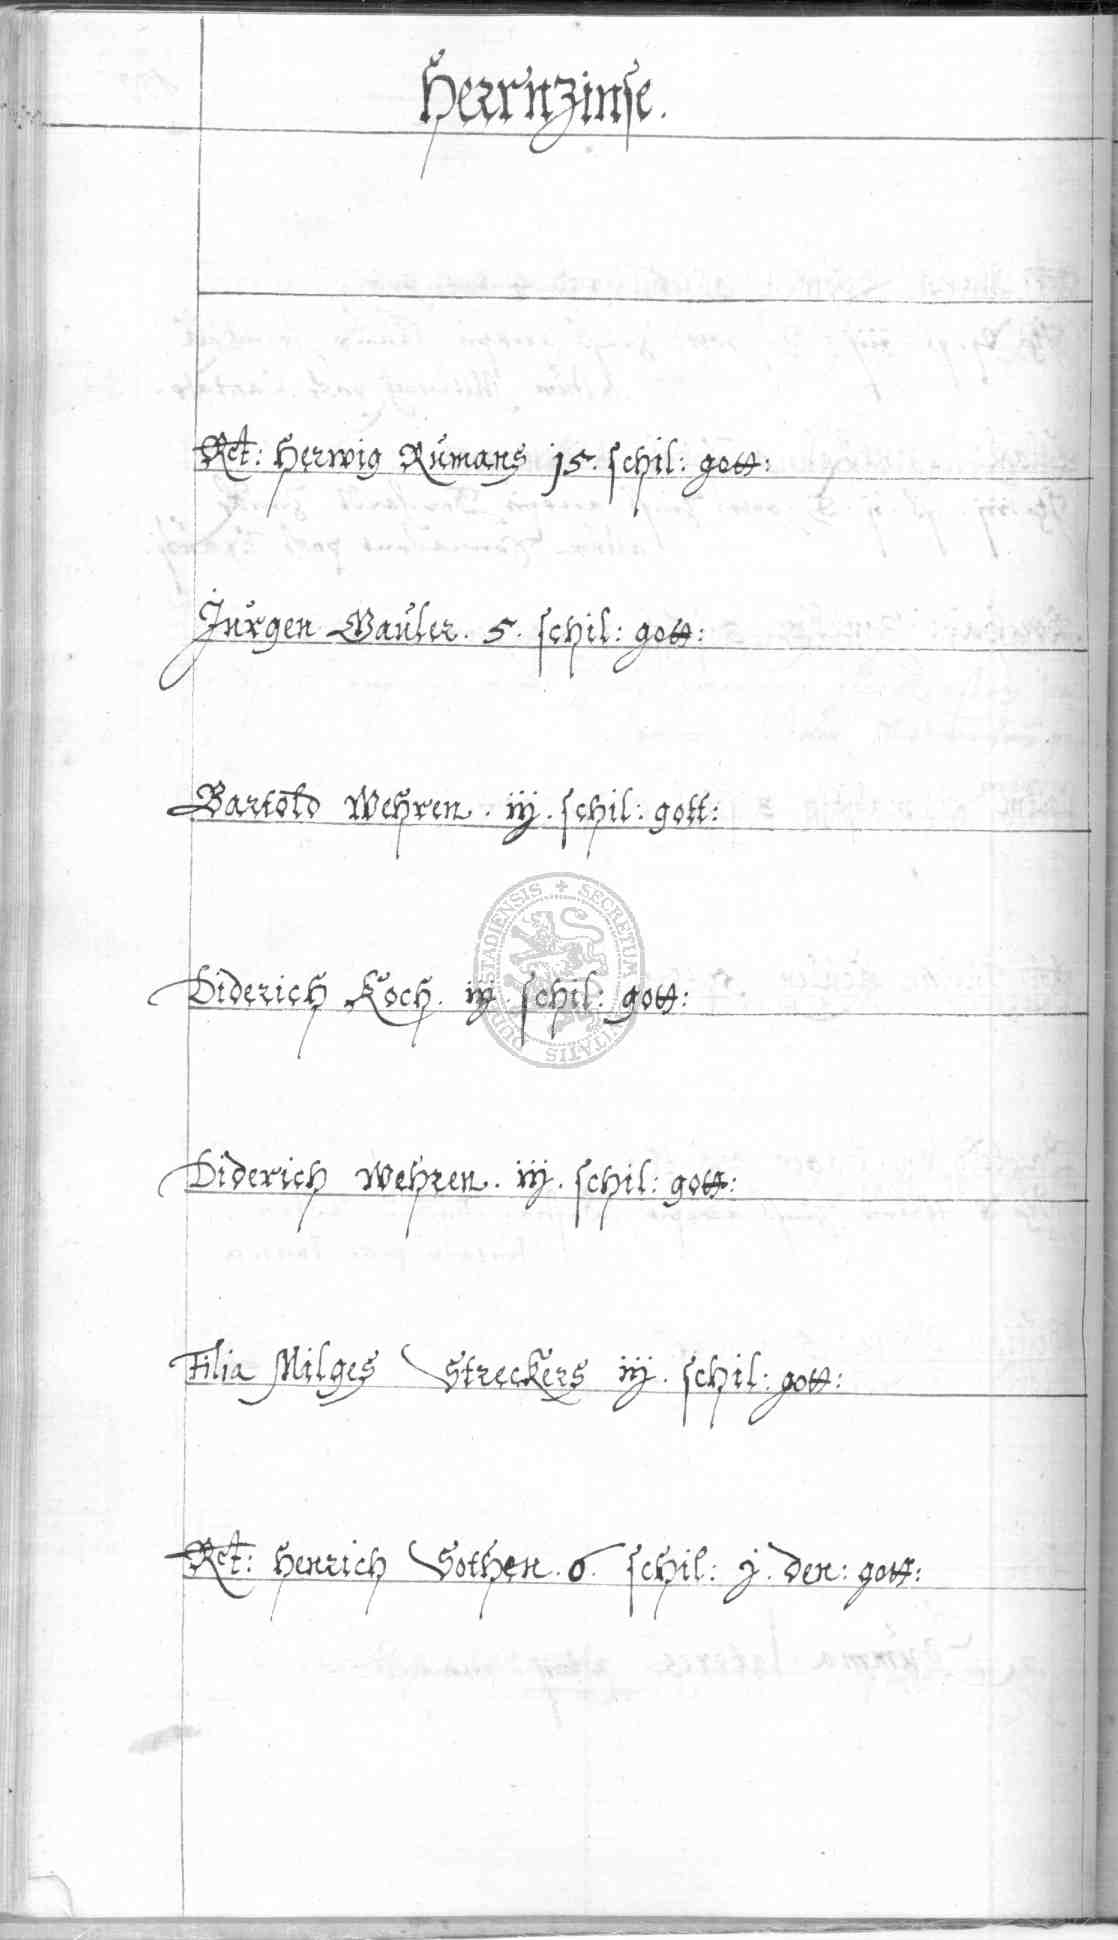 Herrnzinse.
Rct: Herwig Rumans 15. schil: gott:
Jurgen Wauler. 5. schil: gott:
Bartold Wehren. iij. schil: gott:
Diderich Koch. iij. schil: gott:
Diderich Wehren. iij. schil: gott:
Filia Milges Streckers iij. schil: gott:
Rct: Henrich Sothen. 6. schil: j. den: gott:
SECRETUM